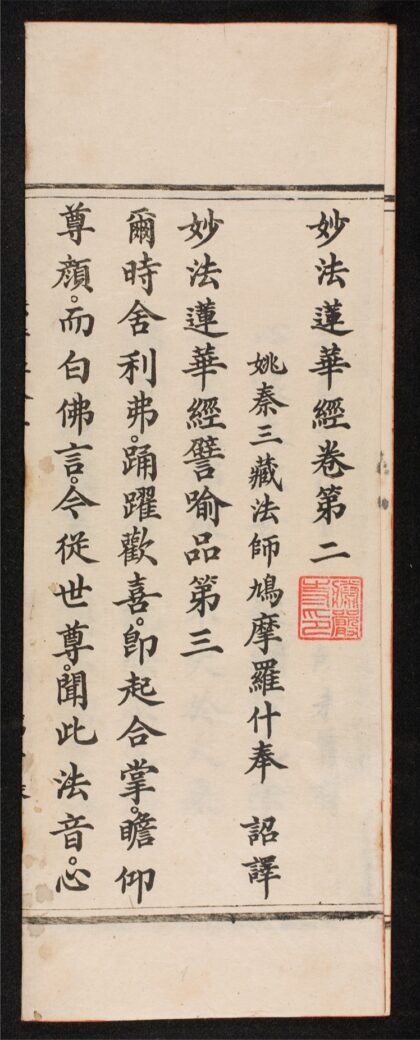 妙法蓮華經卷第二
姚秦三藏法師鳩摩羅什奉 詔譯
妙法蓮華經譬喻品第三
爾時舍利弗。踊躍歡喜。卽起合掌。瞻仰
尊顏。而白佛言。今從世尊。聞此法音。心